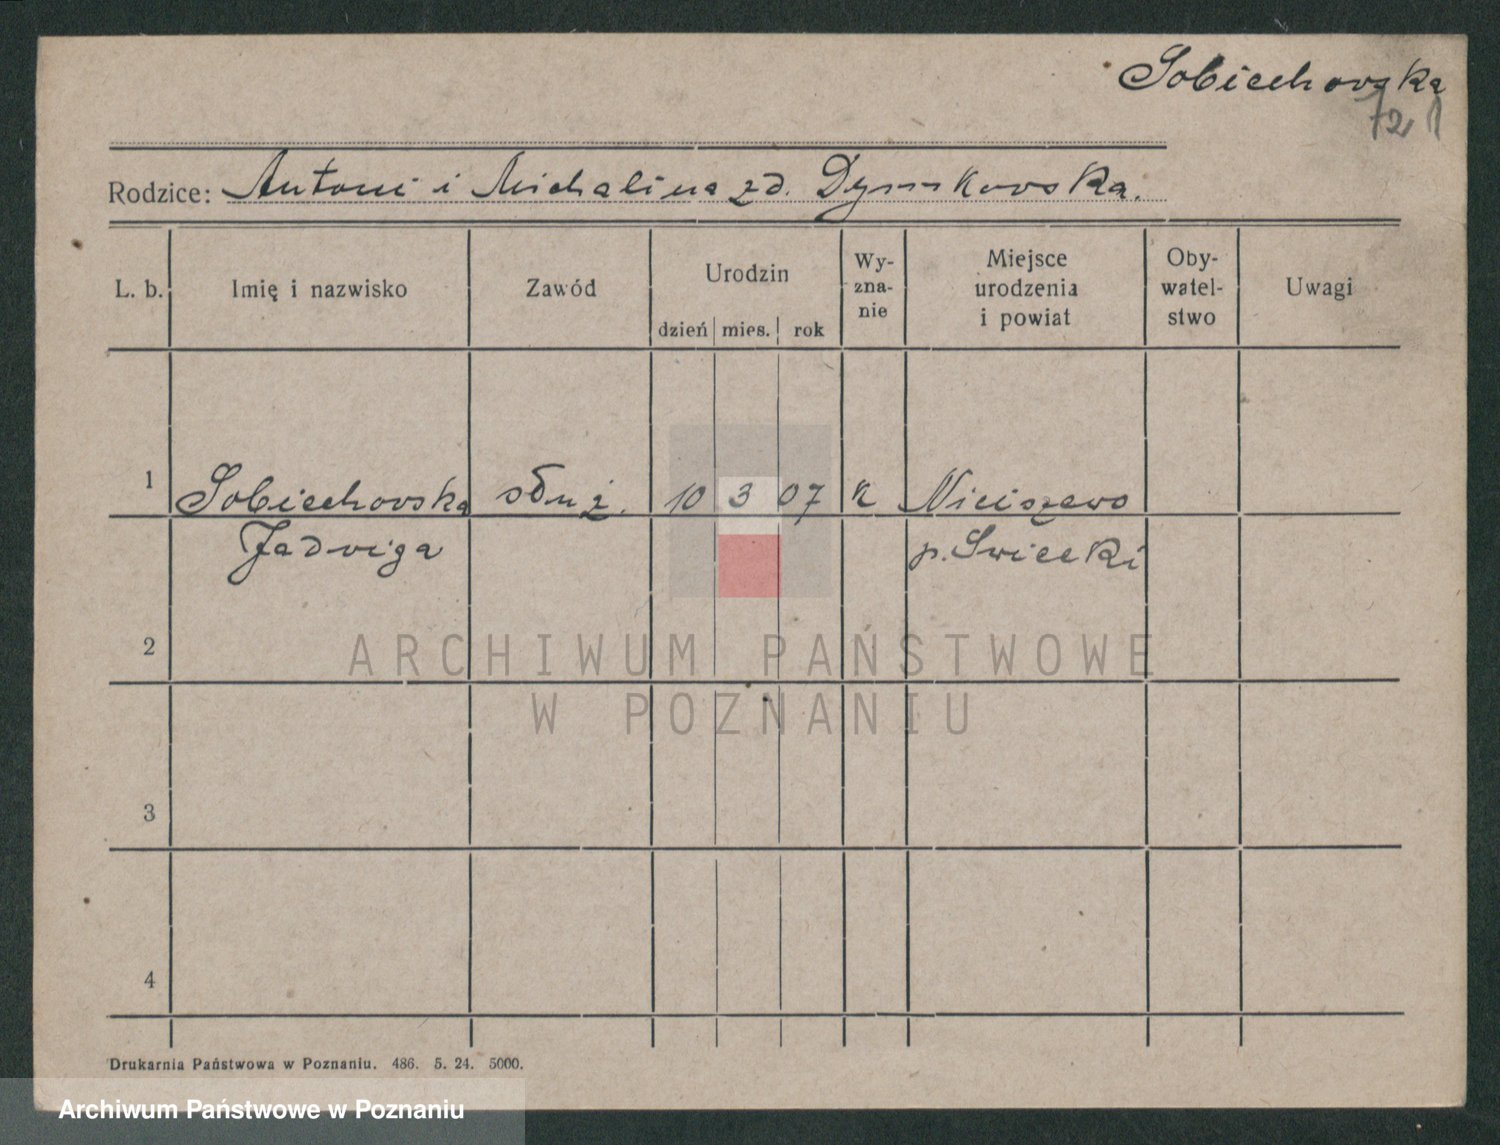 Sobiechowska
72 1
Rodzice: Antoni i Michalina zd. Dymkowska.
L. b. Imię i nazwisko Zawód Urodzin Wy- Miejsce Oby- Uwagi
zna- urodzenia watel-
nie i powiat stwo
dzień mies. rok
1 Sobiechowska służ. 10 3 07 k Niciszewo
Jadwiga p. Swiecki
2
ARCHIWUM PAŃSTWOWE
W POZNANIU
3
4
Drukarnia Państwowa w Poznaniu. 486. 5. 24. 5000.
Archiwum Państwowe w Poznaniu